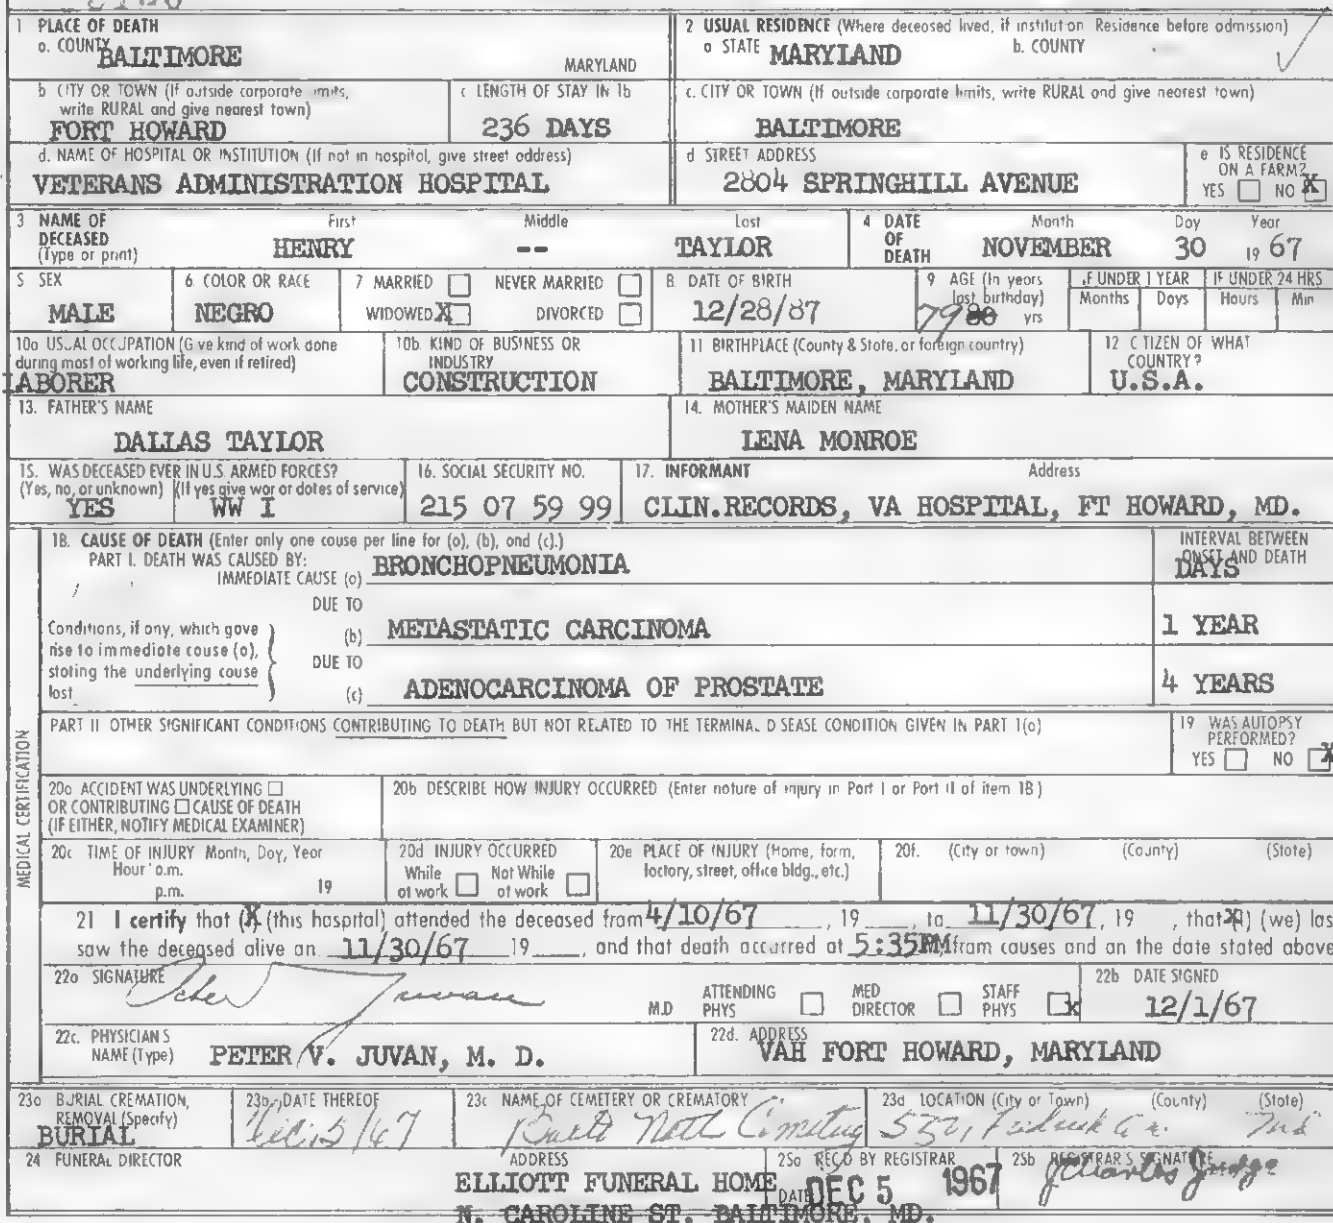 1 PLACE OF DEATH
a. COUNTY BALTIMORE MARYLAND
2 USUAL RESIDENCE (Where deceased lived, if institution Residence before admission)
a STATE MARYLAND b. COUNTY
b CITY OR TOWN (If outside corporate limits, write RURAL and give nearest town)
FORT HOWARD
c LENGTH OF STAY IN 1b
236 DAYS
c. CITY OR TOWN (If outside corporate limits, write RURAL and give nearest town)
BALTIMORE
d. NAME OF HOSPITAL OR INSTITUTION (If not in hospital, give street address)
VETERANS ADMINISTRATION HOSPITAL
d STREET ADDRESS
2804 SPRINGHILL AVENUE
e IS RESIDENCE ON A FARM?
YES NO X
3 NAME OF DECEASED (Type or print)
First Middle Last
HENRY -- TAYLOR
4 DATE OF DEATH
Month Day Year
NOVEMBER 30 19 67
5 SEX
MALE
6 COLOR OR RACE
NEGRO
7 MARRIED NEVER MARRIED
WIDOWED X DIVORCED
8. DATE OF BIRTH
12/28/87
9 AGE (In years last birthday)
79 80 yrs
IF UNDER 1 YEAR
Months Days
IF UNDER 24 HRS
Hours Min
10a USUAL OCCUPATION (Give kind of work done during most of working life, even if retired)
LABORER
10b. KIND OF BUSINESS OR INDUSTRY
CONSTRUCTION
11 BIRTHPLACE (County & State, or foreign country)
BALTIMORE, MARYLAND
12 CITIZEN OF WHAT COUNTRY?
U.S.A.
13. FATHER'S NAME
DALLAS TAYLOR
14. MOTHER'S MAIDEN NAME
LENA MONROE
15. WAS DECEASED EVER IN U.S. ARMED FORCES?
(Yes, no, or unknown) (If yes give war or dates of service)
YES WW I
16. SOCIAL SECURITY NO.
215 07 59 99
17. INFORMANT Address
CLIN.RECORDS, VA HOSPITAL, FT HOWARD, MD.
MEDICAL CERTIFICATION
18. CAUSE OF DEATH (Enter only one cause per line for (a), (b), and (c).)
PART I. DEATH WAS CAUSED BY:
IMMEDIATE CAUSE (a) BRONCHOPNEUMONIA
INTERVAL BETWEEN ONSET AND DEATH
DAYS
DUE TO
Conditions, if any, which gave rise to immediate cause (a), stating the underlying cause last
(b) METASTATIC CARCINOMA
1 YEAR
DUE TO
(c) ADENOCARCINOMA OF PROSTATE
4 YEARS
PART II OTHER SIGNIFICANT CONDITIONS CONTRIBUTING TO DEATH BUT NOT RELATED TO THE TERMINAL DISEASE CONDITION GIVEN IN PART I(a)
19 WAS AUTOPSY PERFORMED?
YES NO X
20a ACCIDENT WAS UNDERLYING
OR CONTRIBUTING CAUSE OF DEATH
(IF EITHER, NOTIFY MEDICAL EXAMINER)
20b DESCRIBE HOW INJURY OCCURRED (Enter nature of injury in Part I or Part II of item 18)
20c TIME OF INJURY Month, Day, Year
Hour a.m.
p.m. 19
20d INJURY OCCURRED
While at work Not While at work
20e PLACE OF INJURY (Home, farm, factory, street, office bldg., etc.)
20f. (City or town) (County) (State)
21 I certify that (X) (this hospital) attended the deceased from 4/10/67 19 , to 11/30/67, 19 , that X(I) (we) las
saw the deceased alive on 11/30/67 19 , and that death occurred at 5:35PM from causes and on the date stated above
22a SIGNATURE
Peter V. Juvan M.D
ATTENDING PHYS MED DIRECTOR STAFF PHYS X
22b DATE SIGNED
12/1/67
22c. PHYSICIAN'S NAME (Type)
PETER V. JUVAN, M. D.
22d. ADDRESS
VAH FORT HOWARD, MARYLAND
23a BURIAL CREMATION, REMOVAL (Specify)
BURIAL
23b. DATE THEREOF
Dec. 5/67
23c NAME OF CEMETERY OR CREMATORY
Balto Natl Cemetery
23d LOCATION (City or Town) (County) (State)
24 FUNERAL DIRECTOR ADDRESS
ELLIOTT FUNERAL HOME
N. CAROLINE ST. BALTIMORE, MD.
25a REC'D BY REGISTRAR
DATE DEC 5 1967
25b REGISTRAR'S SIGNATURE
J Charles Judge